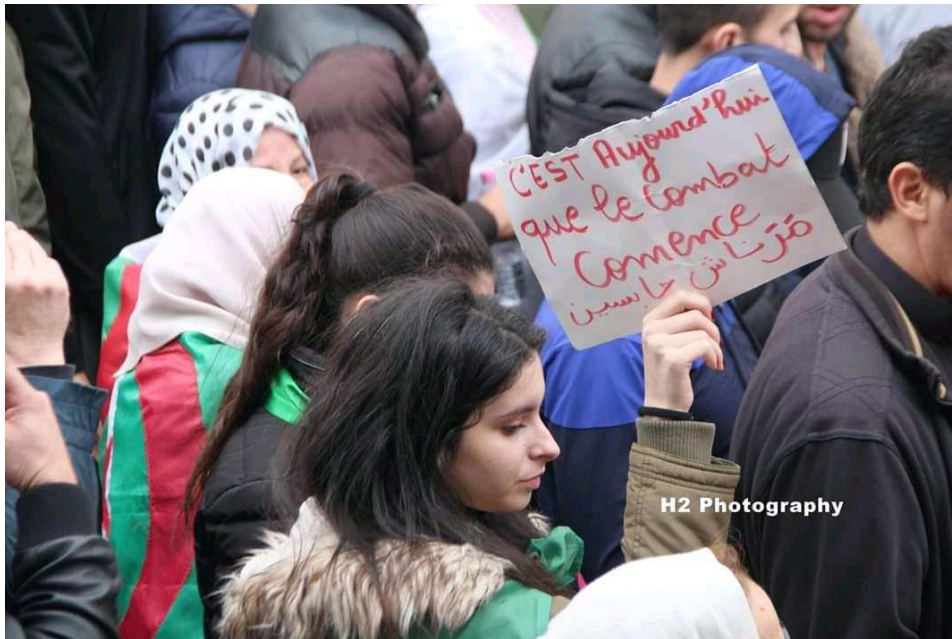 C'EST Aujourd'hui
que le combat
Comence
مَرَناش حابسين
H2 Photography